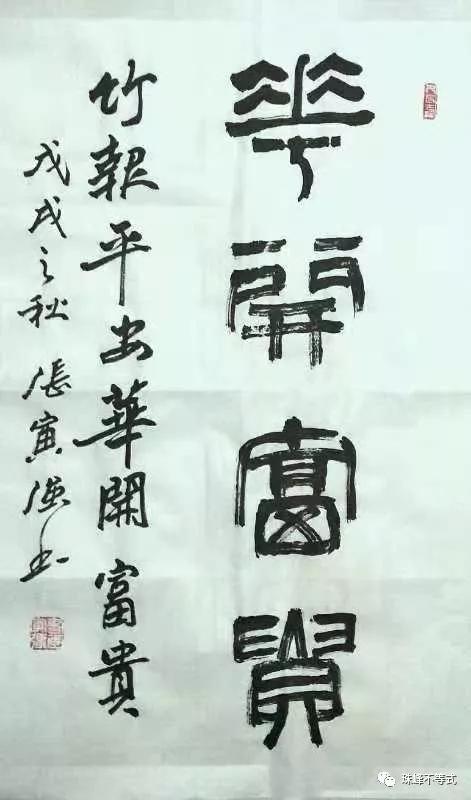 華開富貴
竹報平安華開富貴
戊戌之秋張寅強书
珠蜂不等式